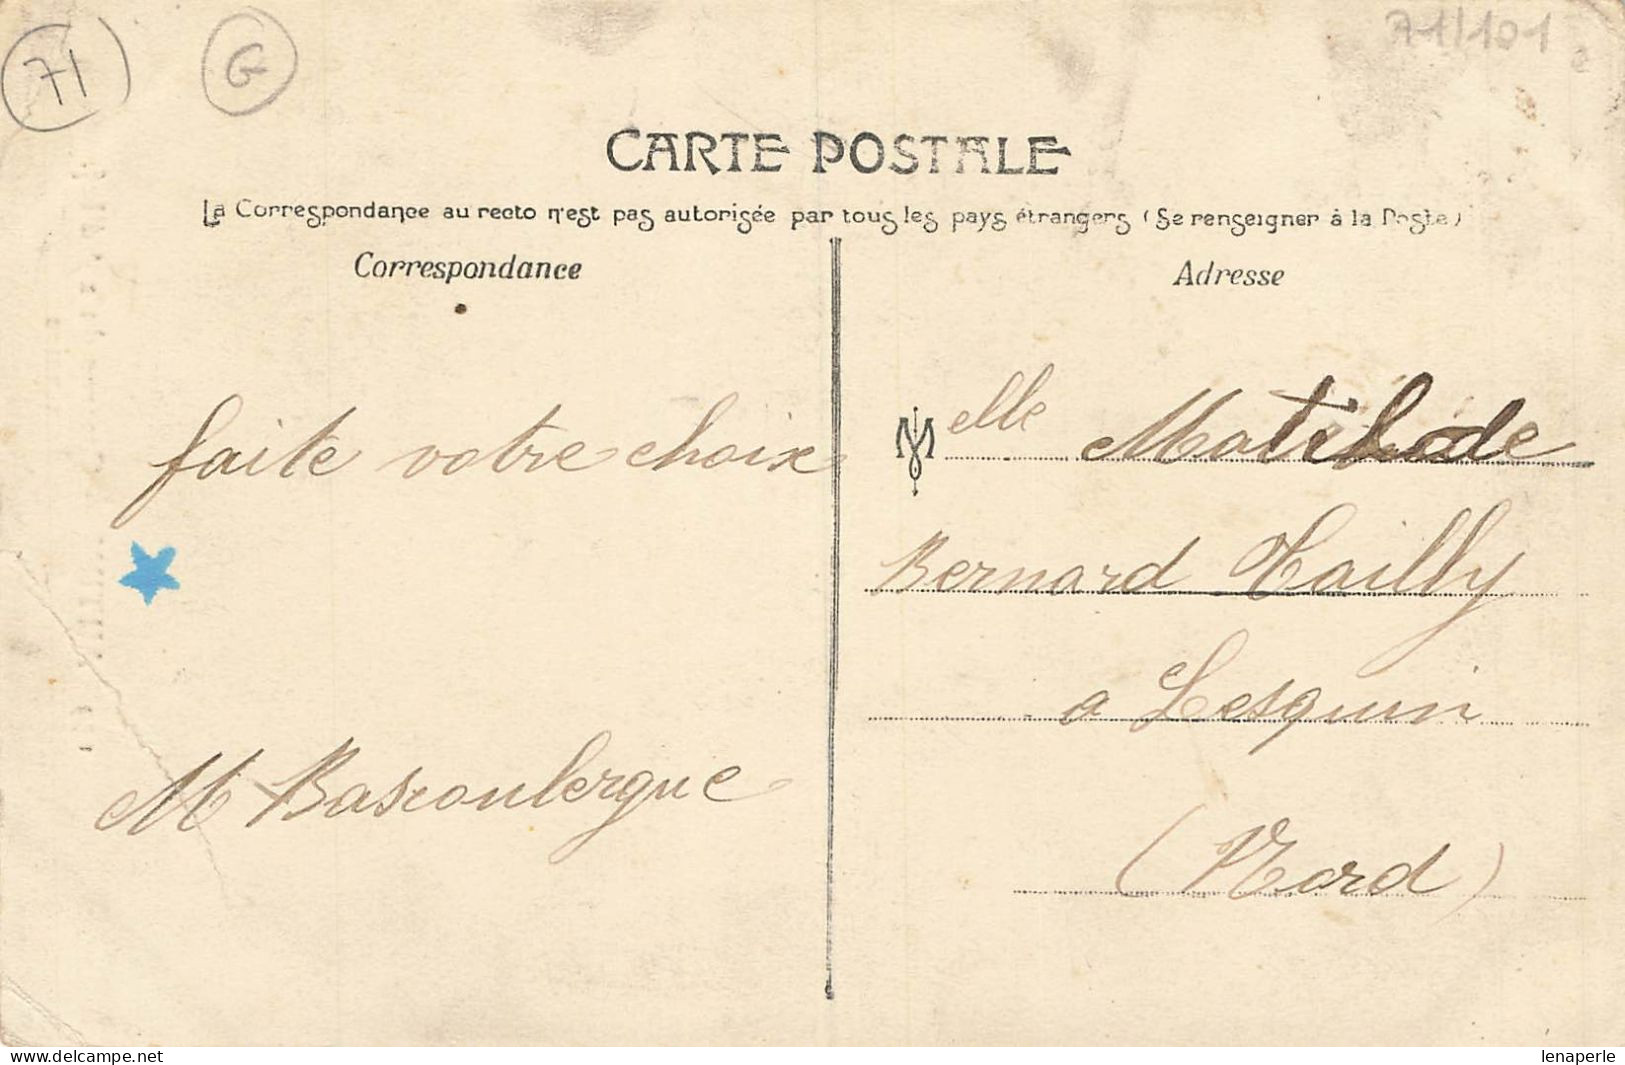 71
G
71/101
CARTE POSTALE
La Correspondance au recto n'est pas autorisée par tous les pays étrangers (Se renseigner à la Poste)
Correspondance
Adresse
faite votre choix
M Bascoulergue
Melle Matilde
Bernard Tailly
a Lesquin
(Nord)
www.delcampe.net
lenaperle